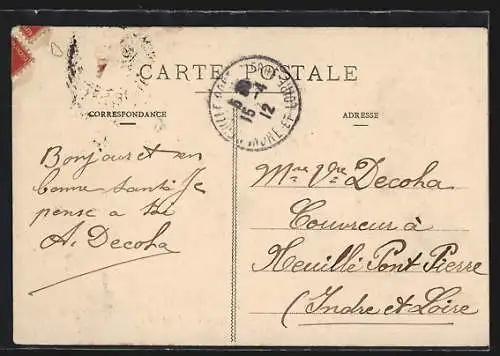 CARTE POSTALE
CORRESPONDANCE
ADRESSE
Bonjour et en
bonne santé Je
pense a toi
A. Decoha
INDRE-ET-LOIRE
15-4
12
Mme Vve Decoha
Couvreur à
Neuillé Pont Pierre
(Indre et Loire